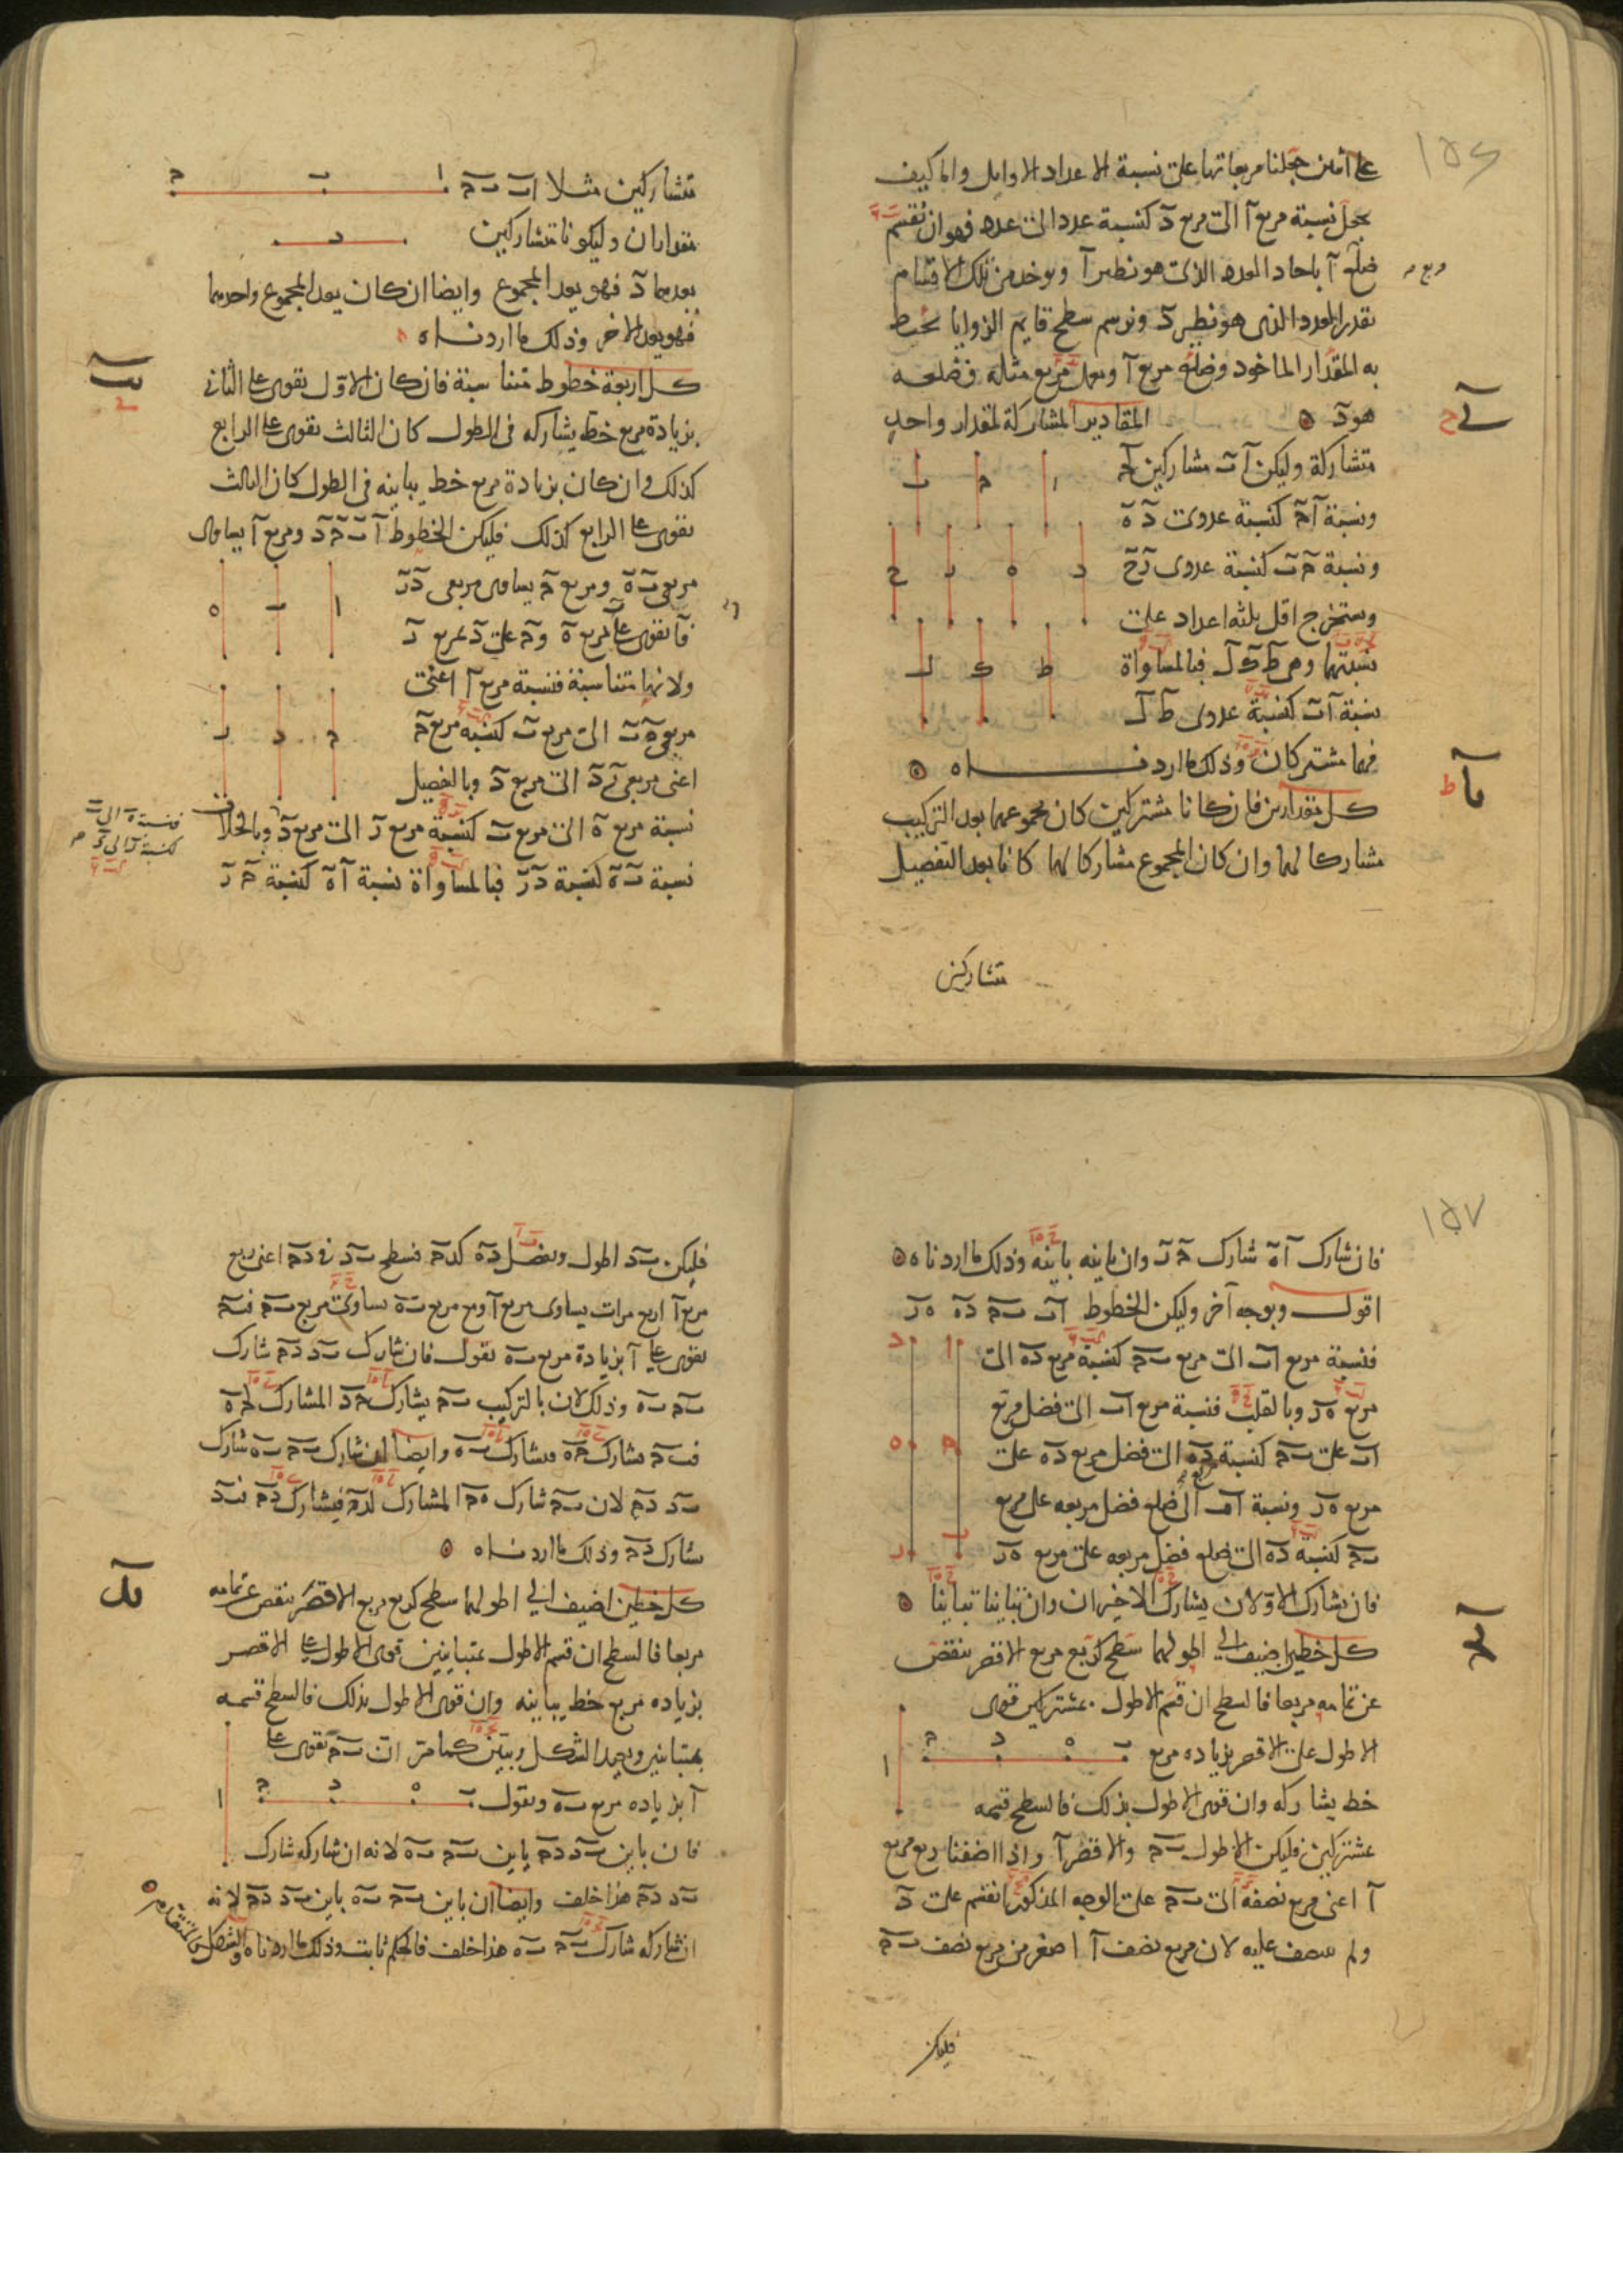 على اثنين جعلنا مربعاتها على نسبة الاعداد الاوايل واما كيف
يجعل نسبة مربع آ الى مربع دَ كنسبة عدد الى عدد فهو ان نقسم
ضلع آ باحاد العدد الذى هو نظير آ ويوخذ من تلك الاقسام
بقدر العدد الذى هو نظير دَ ونرسم سطح قايم الزوايا يحيط
به المقدار الماخوذ وضلع مربع آ ونعمل مربع مثله فضلعه
هو دَ
المقادير المشاركة لمقدار واحد
متشاركة وليكن آ ب مشاركين لحـ
ونسبة آ حـ كنسبة عددى د ه
ونسبة حـ ب كنسبة عددى ر ح
ونستخرج اقل ثلثه اعداد على
نسبتهما وهى ط ك ل فبالمساواة
نسبة آ ب كنسبة عددى ط ل
فهما مشتركان وذلك ما اردنـــاه
كل مقدارين فان كانا مشتركين كان مجموعهما بعد التركيب
مشاركا لهما وان كان المجموع مشاركا لهما كانا بعد التفصيل
متشاركين
متشاركين مثلا اب بحـ
مقداران وليكونا متشاركين
يعدهما دَ فهو يعد المجموع وايضا ان كان يعد المجموع واحدهما
فهو يعد الاخر وذلك ما اردنـــاه
كل اربعة خطوط متناسبة فان كان الاول يقوى على الثانى
بزيادة مربع خط يشاركه فى الطول كان الثالث يقوى على الرابع
كذلك وان كان بزيادة مربع خط يباينه فى الطول كان الثالث
يقوى على الرابع كذلك فليكن الخطوط آ ب حـ د ومربع آ يساوى
مربعى ب ه ومربع حـ يساوى مربعى د ر
فآ يقوى على ب بمربع ه وحـ على د بمربع ر
ولانها متناسبة فنسبة مربع آ اعنى
مربعى ه ب الى مربع ب كنسبة مربع حـ
اعنى مربعى ر د الى مربع د وبالتفصيل
نسبة مربع ه الى مربع ب كنسبة مربع ر الى مربع د وبالخلاف
فنسبة ه الى ب
كنسبة ر الى د
نسبة ب ه كنسبة د ر فبالمساواة نسبة آ ه كنسبة حـ ر
فان شارك آ ه شارك حـ ر وان باينه باينه وذلك ما اردناه
اقول وبوجه آخر وليكن الخطوط اب بحـ ده هر
فنسبة مربع اب الى مربع بحـ كنسبة مربع ده الى
مربع هر وبالقلب فنسبة مربع اب الى فضل مربع
اب على بحـ كنسبة مربع ده الى فضل مربع ده على
مربع هر ونسبة اب الى ضلع فضل مربعه على مربع
بحـ كنسبة ده الى ضلع فضل مربعه على مربع هر
فان تشارك الاولان يشارك الاخيران وان تباينا تباينا
كل خطين اضيف الى اطولهما سطح كربع مربع الاقصر ينقص
عن تمامه مربعا فالسطح ان قسم الاطول بمشتركين قوى
الاطول على الاقصر بزياده مربع
خط يشاركه وان قوى الاطول بذلك فالسطح قسمه
بمشتركين فليكن الاطول بحـ والاقصر آ واذا اضفنا ربع مربع
آ اعنى مربع نصفه الى بحـ على الوجه المذكور انقسم على د
ولم ينتصف عليه لان مربع نصف آ اصغر من مربع نصف بحـ
فليكن
فليكن بد اطول ونفصل ده كدحـ فسطح بد فى دحـ اعنى ربع
مربع آ اربع مرات يساوى مربع آ ومع مربع به يساوى مربع بحـ فبحـ
يقوى على آ بزيادة مربع به نقول فان شارك بد دحـ شارك
بحـ به وذلك لان بالتركيب بحـ يشارك حـد المشارك لحـه
فبحـ يشارك حـه فيشارك به وايضا ان شارك بحـ به شارك
بد دحـ لان بحـ شارك هحـ المشارك لدحـ فيشارك دحـ فبد
شارك دحـ وذلك ما اردنـــاه
كل خطين اضيف الى اطولهما سطح كربع مربع الاقصر ينقص عن تمامه
مربعا فالسطح ان قسم الاطول بمتباينين قوى الاطول على الاقصر
بزياده مربع خط يباينه وان قوى الاطول بذلك فالسطح قسمه
بمتباينين ونعيد الشكل ونبين كما مر ان بحـ يقوى على
آ بزياده مربع به ونقول
فان باين بد دحـ باين بحـ به لانه ان شاركه شارك
بد دحـ هذا خلف وايضا ان باين بحـ به باين بد دحـ لانه
ان شاركه شارك بحـ به هذا خلف فالحكم ثابت وذلك ما اردناه والشكل كالمتقدم